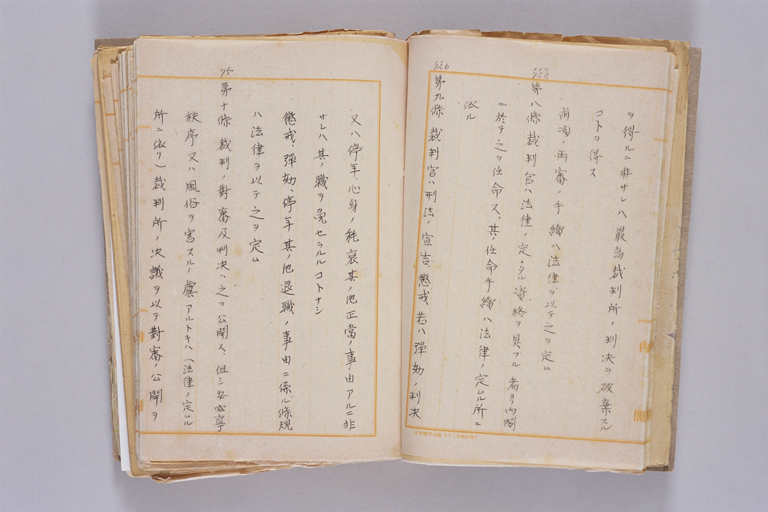 ヲ得ルニ非サレハ最高裁判所ノ判決ヲ破棄スル
コトヲ得ス
前項ノ再審ノ手続ハ法律ヲ以テ之ヲ定ム
第八條 裁判官ハ法律ノ定ムル資格ヲ具フル者ヨリ内閣
ニ於テ之ヲ任命ス、其ノ任命手続ハ法律ノ定ムル所ニ
依ル
第九條 裁判官ハ刑法ノ宣告、懲戒若ハ弾劾ノ判決
又ハ停年、心身ノ耗衰其ノ他正當ノ事由アルニ非
サレハ其ノ職ヲ免セラルルコトナシ
懲戒、弾劾、停年其ノ他退職ノ事由ニ係ル條規
ハ法律ヲ以テ之ヲ定ム
75
第十條 裁判ノ對審及判決ハ之ヲ公開ス、但シ安寧
秩序又ハ風俗ヲ害スルノ虞アルトキハ(法律ノ定ムル
所ニ依リ)裁判所ノ決議ヲ以テ對審ノ公開ヲ